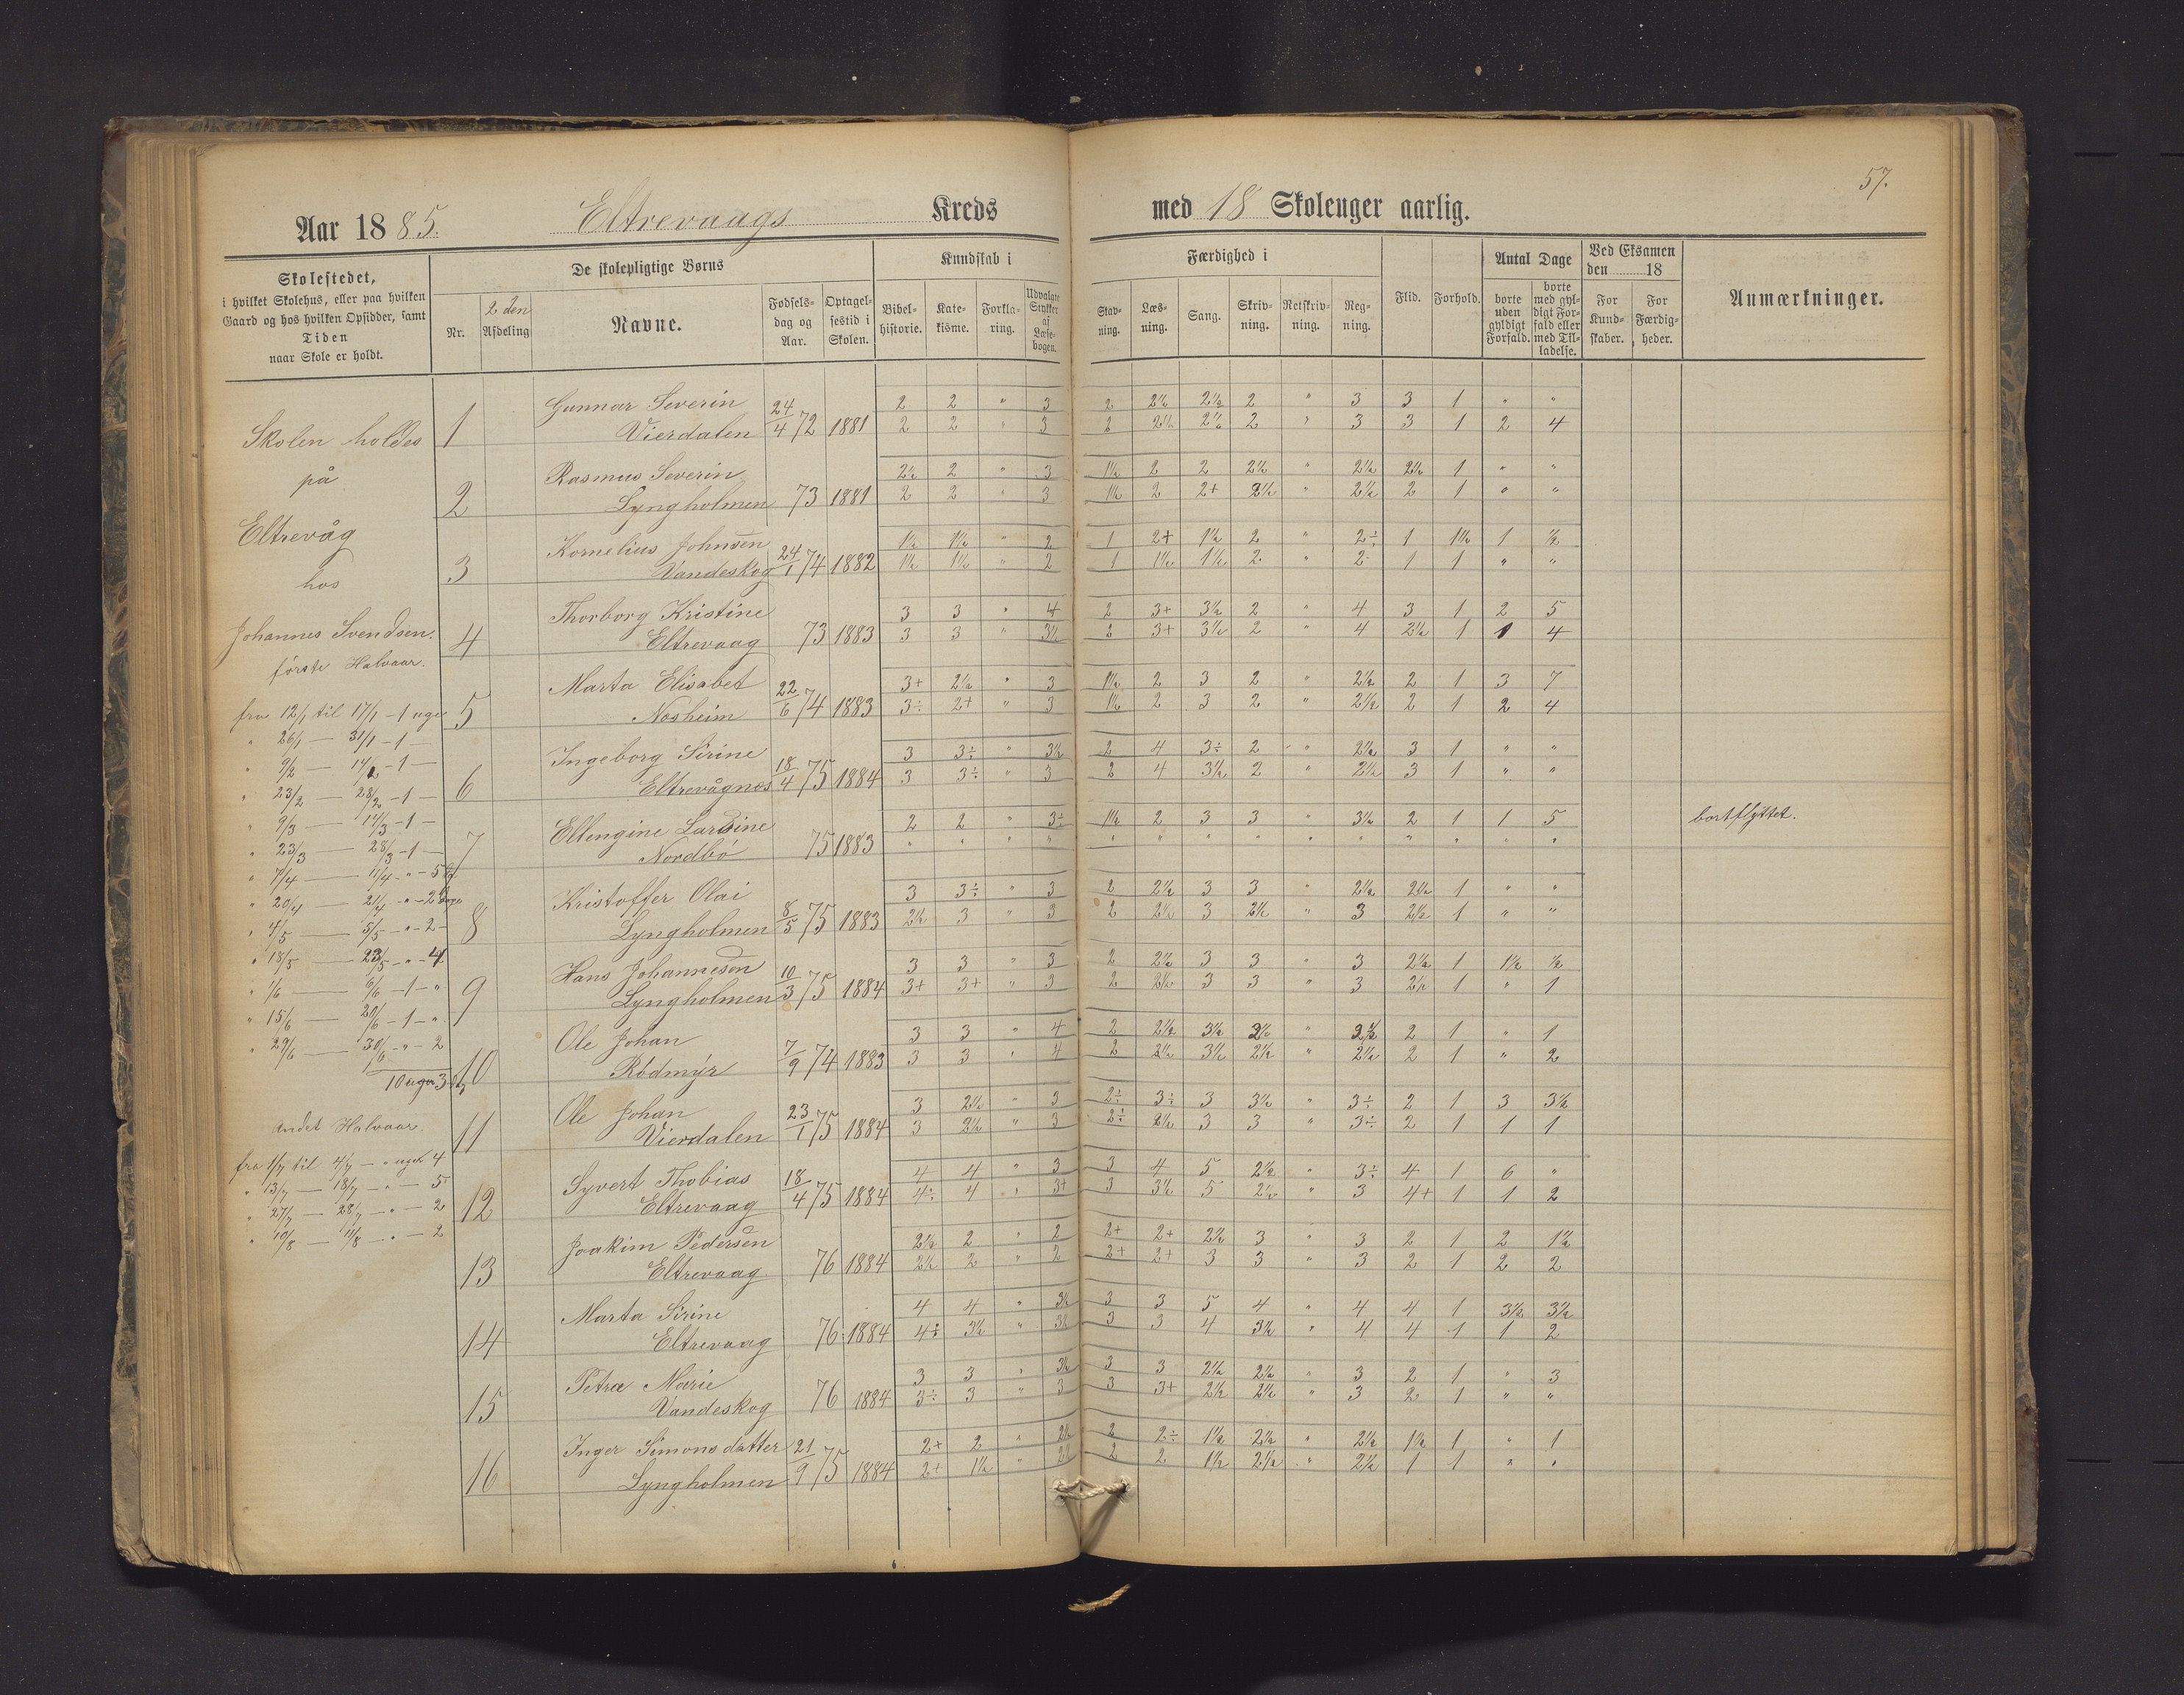 57.
Aar 1885. Eltrevaags Kreds med 18 Skoleuger aarlig.
Skolestedet,
i hvilket Skolehus, eller paa hvilken
Gaard og hos hvilken Opsidder, samt
Tiden
naar Skole er holdt.
De skolepligtige Børns
Nr.
2den
Afdeling
Navne.
Fødsels-
dag og
Aar.
Optagel-
sestid i
Skolen.
Kundskab i
Bibel-
historie.
Kate-
kisme.
Forkla-
ring.
Udvalgte
Stykker
af
Læse-
bogen.
Færdighed i
Stav-
ning.
Læs-
ning.
Sang.
Skriv-
ning.
Retskriv-
ning.
Reg-
ning.
Flid.
Forhold.
Antal Dage
borte
uden
gyldigt
Forfald.
borte
med gyl-
digt For-
fald eller
med Til-
ladelse.
Ved Eksamen
den 18
For
Kund-
skaber.
For
Færdig-
heder.
Anmærkninger.
Skolen holdes
på
Eltrevåg
hos
Johannes Svendsen.
første Halvaar.
fra 12/1 til 17/1 - 1 uge
" 26/1 — 31/1 - 1 —
" 9/2 — 14/2 - 1 —
" 23/2 — 28/2 - 1 —
" 9/3 — 14/3 - 1 —
" 23/3 — 28/3 - 1 —
" 7/4 — 11/4 - " - 5
" 20/4 — 21/4 - " - 2
" 4/5 — 5/5 - " - 2 -
" 18/5 — 23/5 - " - 4
" 1/6 — 6/6 - 1 - "
" 15/6 — 20/6 - 1 - "
" 29/6 — 30/6 - " - 2
10 uger 3
andet Halvaar.
fra 1/7 til 4/7 — " uger 4
" 13/7 — 18/7 — " — 5
" 27/7 — 28/7 — " — 2
" 10/8 — 11/8 — " — 2
1 Gunnar Severin 24/4 72 1881 2 2 " 3 2 2½ 2½ 2 " 3 3 1 " "
Vierdalen 2 2 " 3 2 2½ 2½ 2 " 3 3 1 2 4
2 Rasmus Severin 73 1881 2½ 2 " 3 1½ 2 2 2½ " 2½ 2½ 1 " "
Lyngholmen 2 2 " 3 1½ 2 2+ 2½ " 2½ 2 1 " "
3 Kornelius Johnsen 24/1 74 1882 1½ 1½ " 2 1 2+ 1½ 2 " 2÷ 1 1½ 1 ½
Vandeskog 1½ 1½ " 2 1 1½ 1½ 2 " 2- 1 1 " "
4 Thorborg Kristine 73 1883 3 3 " 4 2 3+ 3½ 2 " 4 3 1 2 5
Eltrevaag 3 3 " 3½ 2 3+ 3½ 2 " 4 2½ 1 1 4
5 Marta Elisabet 22/6 74 1883 3+ 2½ " 3 1½ 2 3 2 " 2½ 2 1 3 7
Nosheim 3÷ 2+ " 3 1½ 2 3 2 " 2½ 2 1 2 4
6 Ingeborg Sirine 18/4 75 1884 3 3÷ " 3½ 2 4 3÷ 2 " 2½ 3 1 " "
Eltrevågnes 3 3÷ " 3 2 4 3½ 2 " 2½ 3 1 " "
7 Ellengine Lardine 75 1883 2 2 " 3÷ 1½ 2 3 3 " 3½ 2 1 1 5 bortflyttet.
Nordbø " " " " " " " " " " " " " "
8 Kristoffer Olai 8/5 75 1883 3 3÷ " 3 2 2½ 3 3 " 2½ 2½ 1 " "
Lyngholmen 2½ 3 " 3 2 2½ 3 2½ " 3 2½ 1 " "
9 Hans Johannesen 10/3 75 1884 3 3 " 3 2 2½ 3 3 " 3 2½ 1 1½ ½
Lyngholmen 3+ 3+ " 3 2 2½ 3 3 " 3 2½ 1 " 1
10 Ole Johan 7/9 74 1883 3 3 " 4 2 2½ 3½ 3½ " 3½ 2 1 " 1
Rødmyr 3 3 " 4 2 2½ 3½ 2½ " 2½ 2 1 " 2
11 Ole Johan 23/1 75 1884 3 2½ " 3 2÷ 3÷ 3 3½ " 3÷ 2 1 3 3½
Vierdalen 3 2½ " 3 2÷ 2½ 3 3 " 3÷ 2 1 1 1
12 Syvert Thobias 18/4 75 1884 4 4 " 3 3 4 5 2½ " 3÷ 4 1 6 "
Eltrevaag 4÷ 4 " 3+ 3 3½ 5 2½ " 3 4+ 1 1 2
13 Joakim Pedersen 76 1884 2½ 2 " 2 2+ 2+ 2½ 3 " 3 2 1 2 1½
Eltrevaag 2½ 2 " 2 2+ 2+ 3 3 " 3 2 1 2 2
14 Marta Sirine 76 1884 4 4 " 3½ 3 3 5 4 " 4 4 1 3½ 3½
Eltrevaag 4÷ 3½ " 3½ 3 3 4 3½ " 4 4 1 1 2
15 Petra Marie 76 1884 3 3 " 3½ 3 3 2½ 2½ " 3 2 1 " 3
Vandeskog 3÷ 3 " 3 3 3+ 2½ 2½ " 3 2 1 " "
16 Inger Simonsdatter 21/9 75 1884 2+ 2 " 2½ 2 2÷ 1½ 2½ " 2½ 1½ 1 " 1
Lyngholmen 2+ 1½ " 2½ 2 2 1½ 2½ " 2½ 1 1 " "